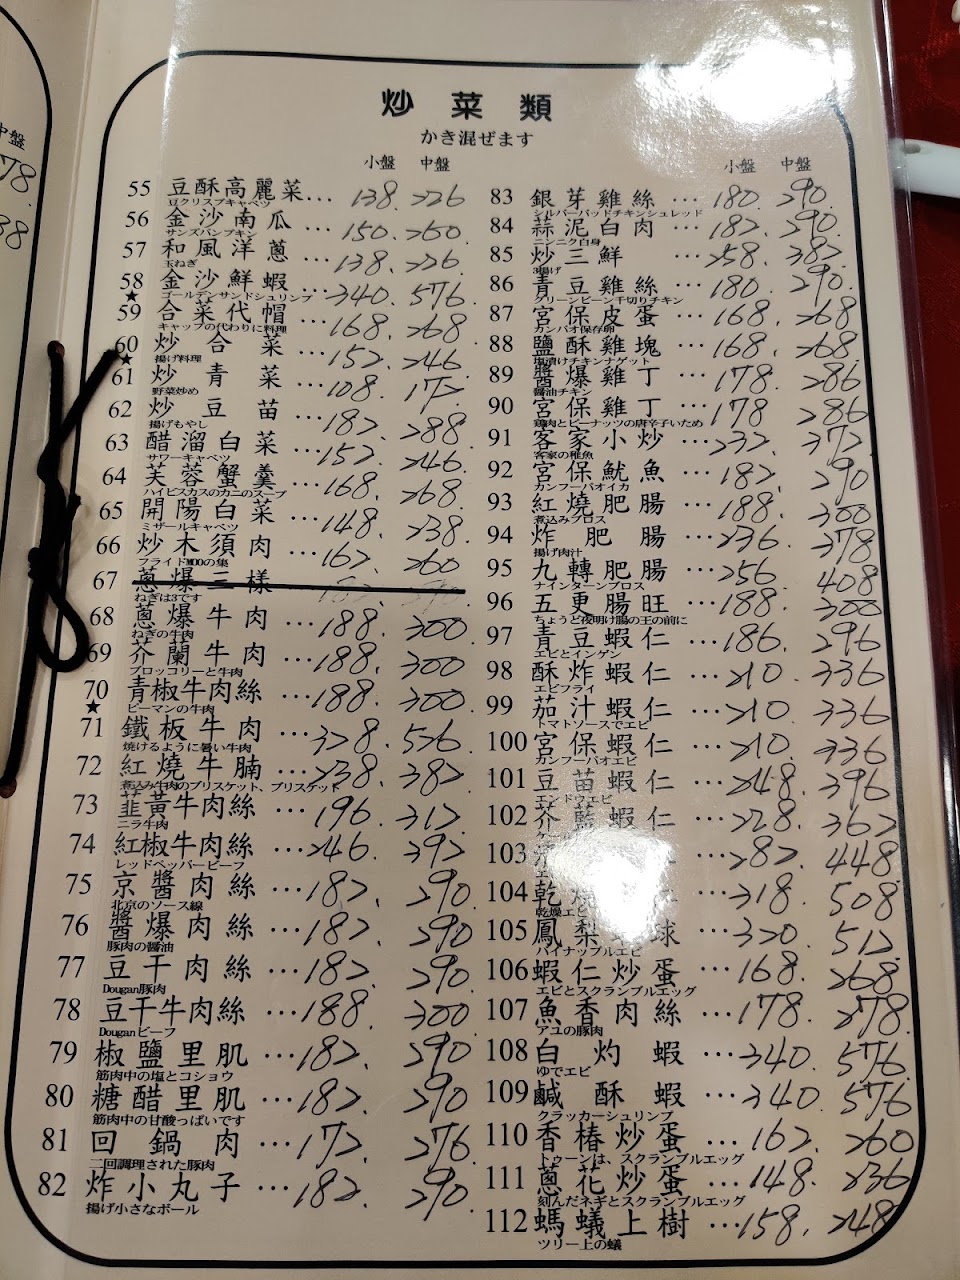 炒菜類
かき混ぜます
小盤 中盤
55 豆酥高麗菜... 138. 226
豆クリスプキャベツ
56 金沙南瓜... 150. 260
サンズパンプキン
57 和風洋蔥... 138. 226
玉ねぎ
58 金沙鮮蝦... 340. 576
★ ゴールデンサンドシュリンプ
59 合菜代帽... 168. 268
キャップの代わりに料理
60 炒合菜... 152. 246
★ 揚げ料理
61 炒青菜... 108. 172
野菜炒め
62 炒豆苗... 182. 288
揚げもやし
63 醋溜白菜... 152. 246
サワーキャベツ
64 芙蓉蟹羹... 168. 268
ハイビスカスのカニのスープ
65 開陽白菜... 148. 238
ミザールキャベツ
66 炒木須肉... 162. 260
フライドMOOの集
67 蔥爆三樣
ねぎは3です
68 蔥爆牛肉... 188. 300
ねぎの牛肉
69 芥蘭牛肉... 188. 300
ブロッコリーと牛肉
70 青椒牛肉絲... 188. 300
★ ピーマンの牛肉
71 鐵板牛肉... 328. 526
焼けるように暑い牛肉
72 紅燒牛腩... 238. 382
煮込み牛肉のブリスケット、ブリスケット
73 韮黃牛肉絲... 196. 312
ニラ牛肉
74 紅椒牛肉絲... 246. 392
レッドペッパービーフ
75 京醬肉絲... 182. 290
北京のソース線
76 醬爆肉絲... 182. 290
豚肉の醬油
77 豆干肉絲... 182. 290
Dougan豚肉
78 豆干牛肉絲... 188. 300
Douganビーフ
79 椒鹽里肌... 182. 290
筋肉中の塩とコショウ
80 糖醋里肌... 182. 290
筋肉中の甘酸っぱいです
81 回鍋肉... 172. 276
二回調理された豚肉
82 炸小丸子... 182. 290
揚げ小さなボール
小盤 中盤
83 銀芽雞絲... 180. 290
シルバーバッドチキンシュレッド
84 蒜泥白肉... 182. 290
ニンニク白身
85 炒三鮮... 258. 382
3揚げ
86 青豆雞絲... 180. 290
グリーンビーン千切りチキン
87 宮保皮蛋... 168. 268
カンバオ保存卵
88 鹽酥雞塊... 168. 268
塩漬けチキンナゲット
89 醬爆雞丁... 178. 286
醬油チキン
90 宮保雞丁... 178 286
鶏肉とピーナッツの唐辛子いため
91 客家小炒... 232. 372
客家の稚魚
92 宮保魷魚... 182. 290
カンフーバオイカ
93 紅燒肥腸... 188. 300
煮込みブロス
94 炸肥腸... 236. 378
揚げ肉汁
95 九轉肥腸... 256 408
ナインターンブロス
96 五更腸旺... 188. 300
ちょうど夜明け腸の王の前に
97 青豆蝦仁... 186. 296
エビとインゲン
98 酥炸蝦仁... 210. 336
エビフライ
99 茄汁蝦仁... 210. 336
トマトソースでエビ
100 宮保蝦仁... 210. 336
カンフーバオエビ
101 豆苗蝦仁... 248. 396
エンドウエビ
102 芥藍蝦仁... 228. 362
103 ... 282. 448
104 乾 ... 318. 508
乾燥エビ
105 鳳梨 球... 320. 512
パイナップルエビ
106 蝦仁炒蛋... 168. 268
エビとスクランブルエッグ
107 魚香肉絲... 178. 278
アユの豚肉
108 白灼蝦... 340. 576
ゆでエビ
109 鹹酥蝦... 340. 576
クラッカーシュリンプ
110 香椿炒蛋... 162. 260
トゥーンは、スクランブルエッグ
111 蔥花炒蛋... 148. 236
刻んだネギとスクランブルエッグ
112 螞蟻上樹... 158. 248
ツリー上の蟻
中盤